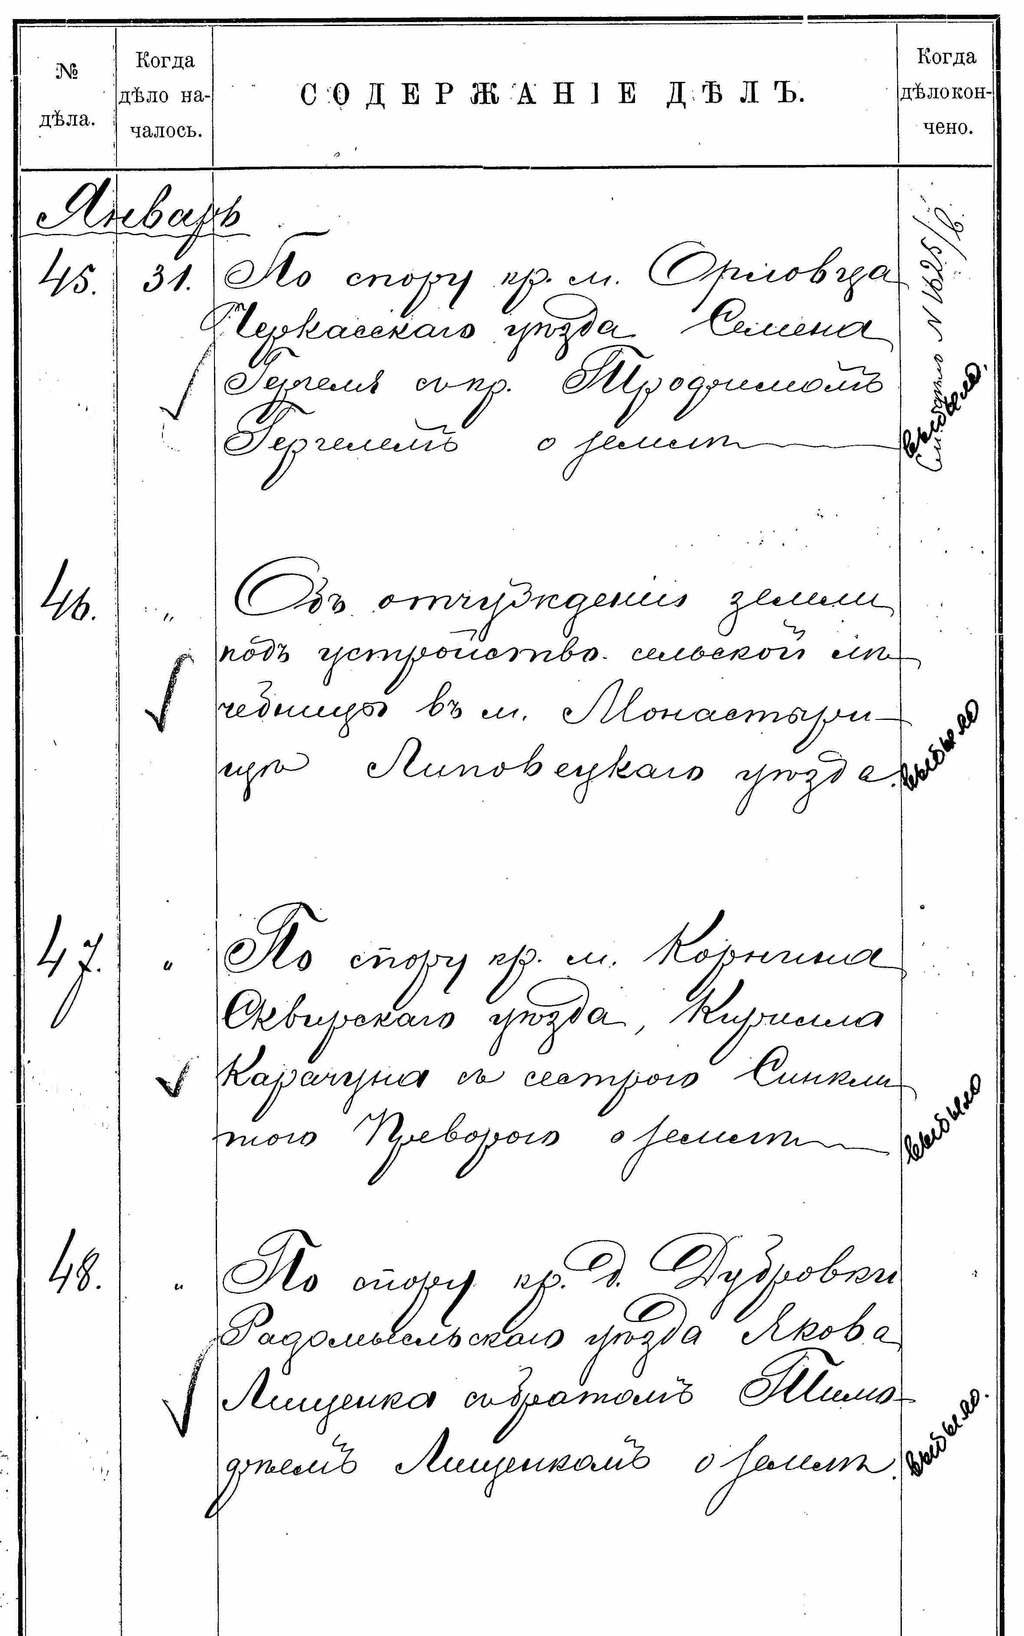 № дѣла.
Когда дѣло на-
чалось.
СОДЕРЖАНІЕ ДѢЛЪ.
Когда дѣло кон-
чено.
Январь
45. 31. По спору кр. м. Орловца
Черкасскаго уѣзда Семена
Гергеля съ кр. Трофимомъ
Гергелемъ о землѣ
выбыло.
№ 1625/
46. " Объ отчужденіи земли
подъ устройство сельской лѣ-
чебницы въ м. Монастыри-
щѣ Липовецкаго уѣзда.
выбыло
47. " По спору кр. м. Корнина
Сквирскаго уѣзда, Кирилла
Карачуна съ сестрою Синкли-
тою Преворою о землѣ
выбыло
48. " По спору кр. д. Дубровки
Радомысльскаго уѣзда Якова
Лищенка съ братомъ Тимо-
феемъ Лищенкомъ о землѣ.
выбыло.